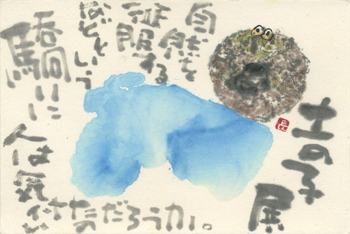 土の子展
自然を
征服する
などという
驕りに
人は気
のだろうか。